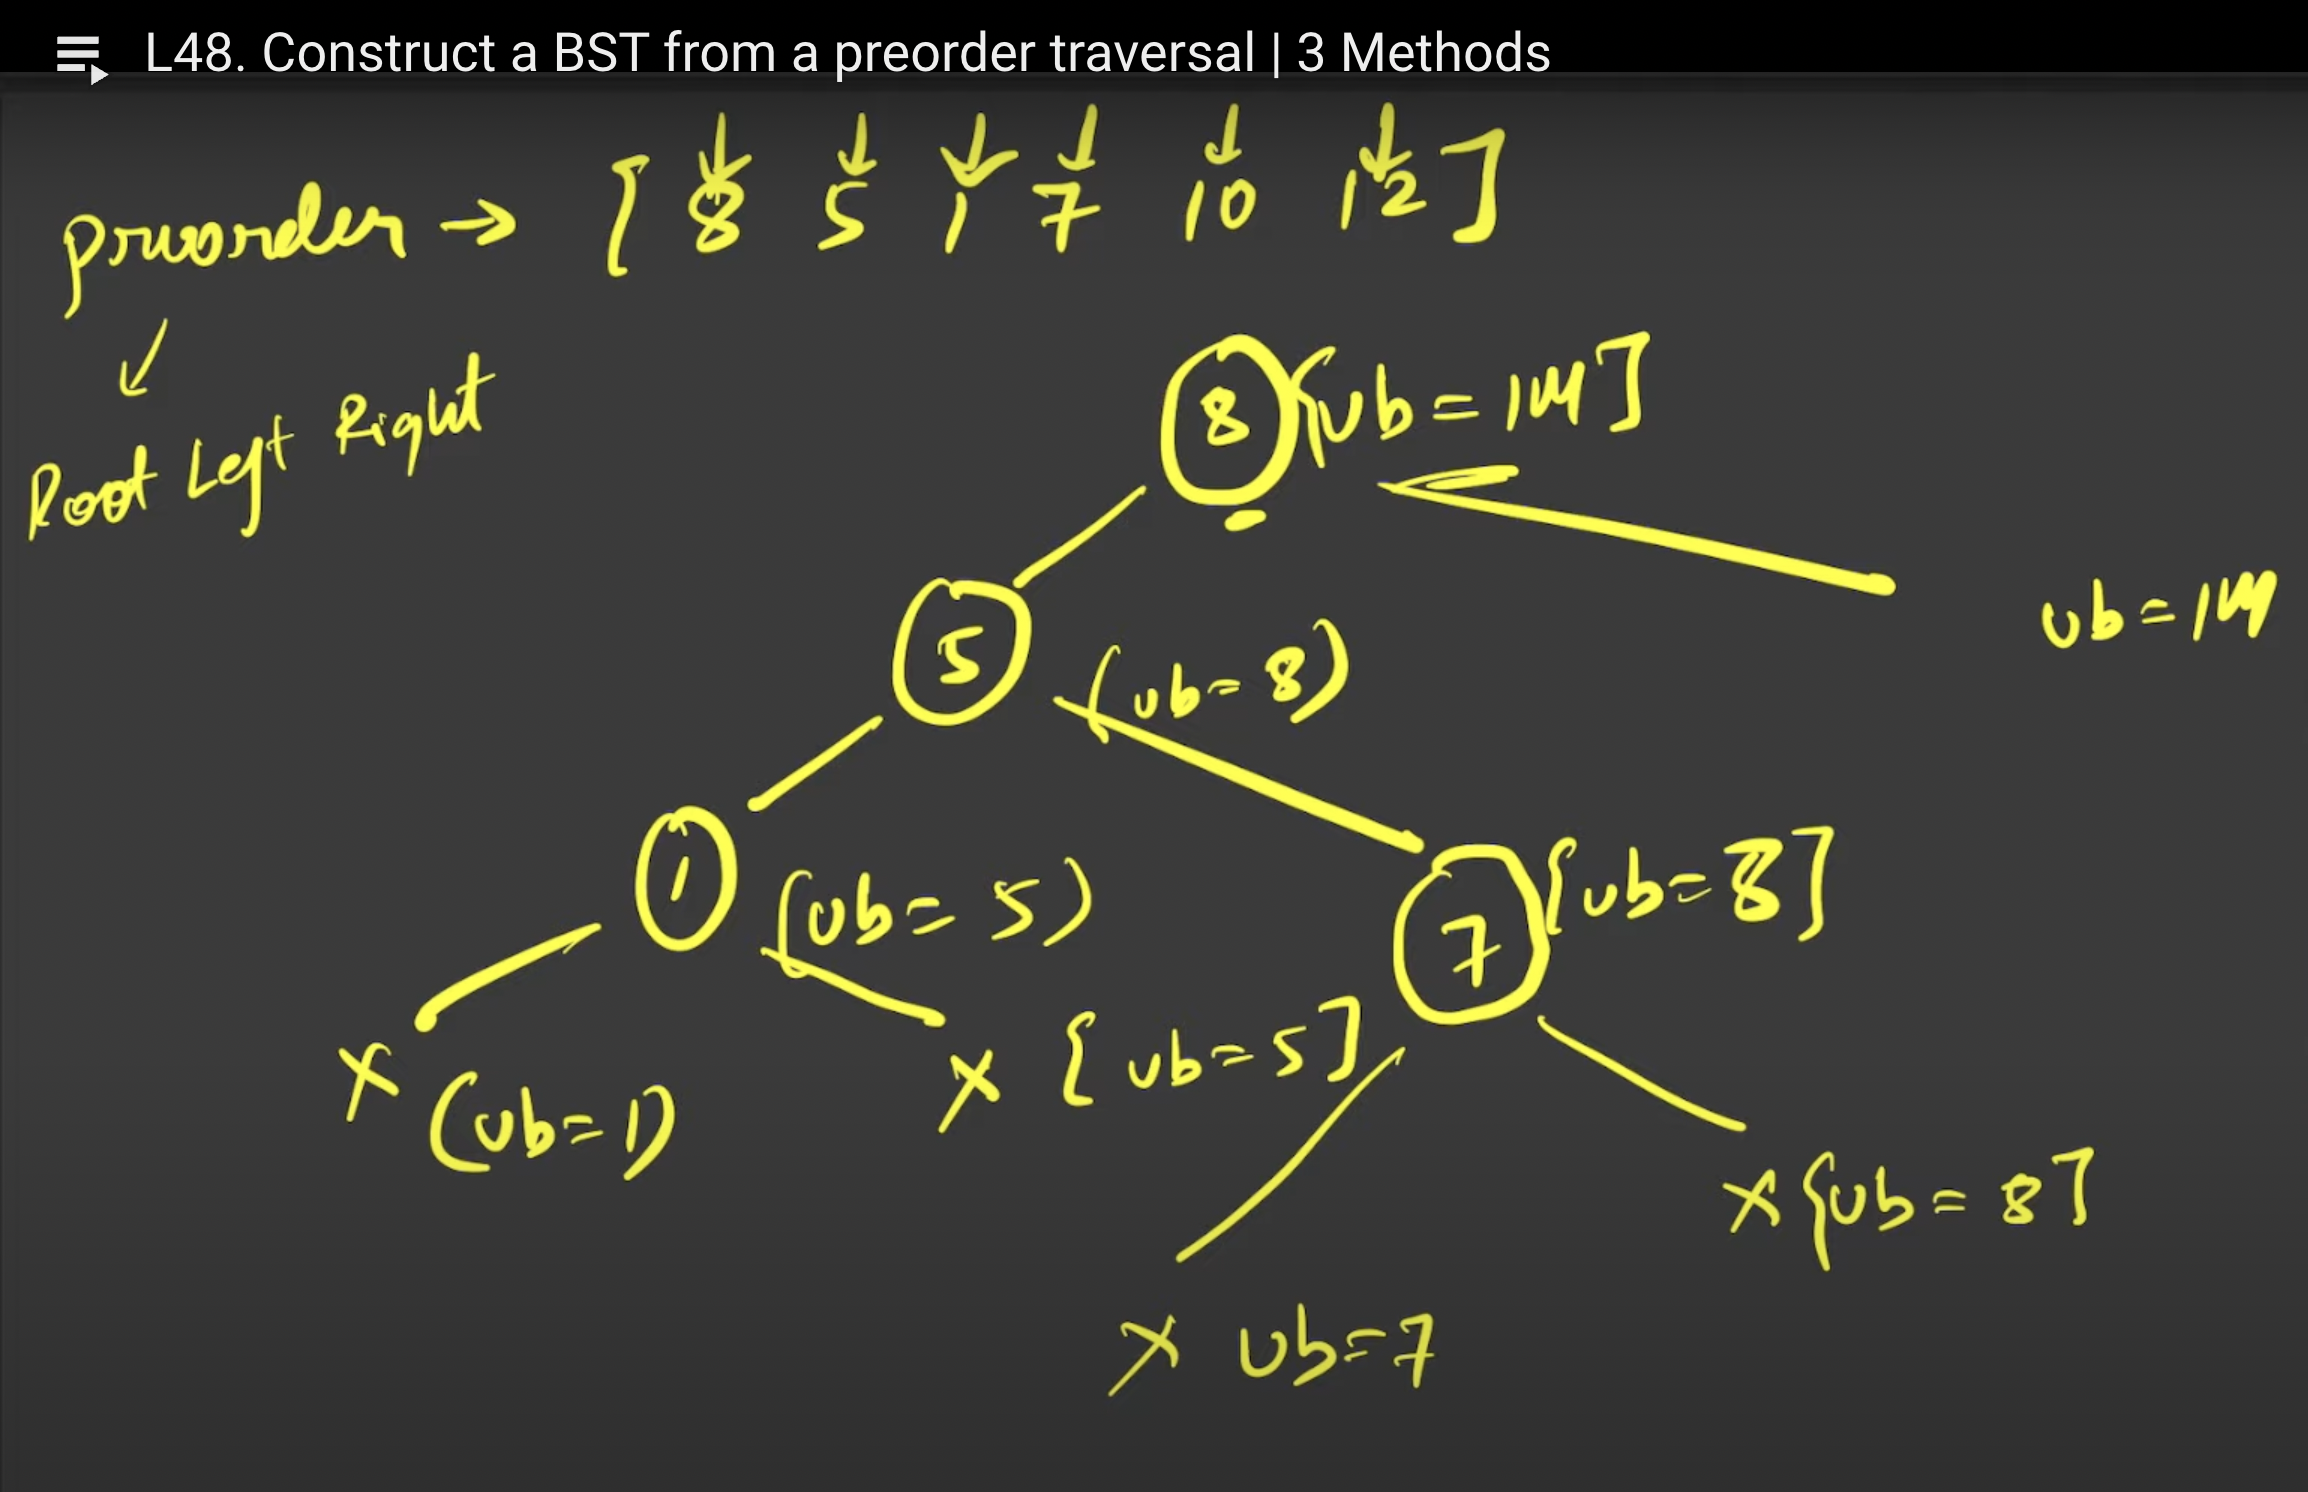 L48. Construct a BST from a preorder traversal | 3 Methods
preorder → [ 8 5 1 7 10 12 ]
Root Left Right
8 [ub = 1M]
ub = 1M
5 (ub = 8)
1 (ub = 5)
7 [ub = 8]
x (ub = 1)
x [ub = 5]
x [ub = 8]
x ub = 7